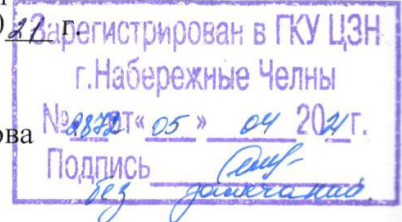 21 г.
Зарегистрирован в ГКУ ЦЗН
г.Набережные Челны
№ 2872 от « 05 » 04 2021 г.
ова
Подпись
без замечаний